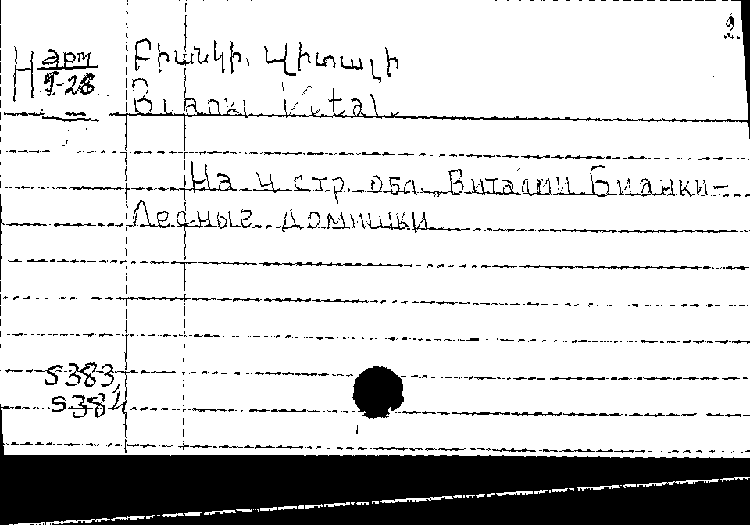 2.
Н арт Բիանկի, Վիտալի
9-28
Bianki Vital.
На 4 стр. обл. Витали Бианки-
Лесные домишки
S383,
S384